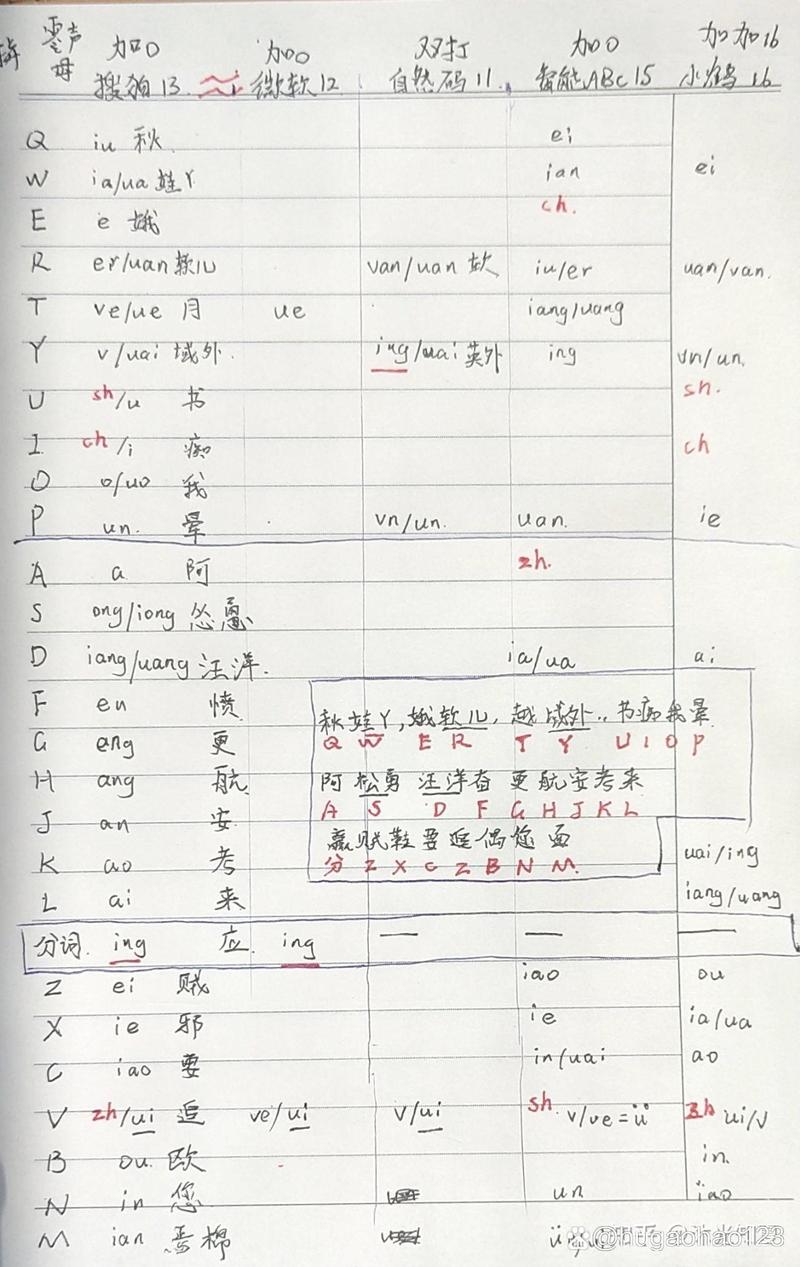 零声母 加O 加O 双打 加O 加加16
搜狗13 微软12 自然码11 智能ABC15 小鹤16
Q iu 秋 ei
W ia/ua 娃丫 ian ei
E e 娥 ch.
R er/uan 软儿 van/uan 软 iu/er uan/van.
T ve/ue 月 ue iang/uang
Y v/uai 域外. ing/uai 英外 ing vn/un.
U sh/u 书 sh.
I ch/i 痴 ch
O o/uo 我
P un. 晕 vn/un. uan. ie
A a 阿 zh.
S ong/iong 怂恿
D iang/uang 汪洋. ia/ua ai
F en 愤
G eng 更
H ang 航
J an 安
K ao 考 uai/ing
L ai 来 iang/uang
秋娃丫,娥软儿,越域外..书痴我晕
Q W E R T Y U I O P
阿松勇 汪洋奋 更航安考来
A S D F G H J K L
赢贼鞋要追偶您面
分 Z X C Z B N M
分词. ing 应. ing — — —
Z ei 贼 iao ou
X ie 邪 ie ia/ua
C iao 要 in/uai ao
V zh/ui 追 ve/ui v/ui sh. v/ve=ü zh ui/v
B ou. 欧 in.
N in 您 un iao
M ian 棉
@hugaohao1123